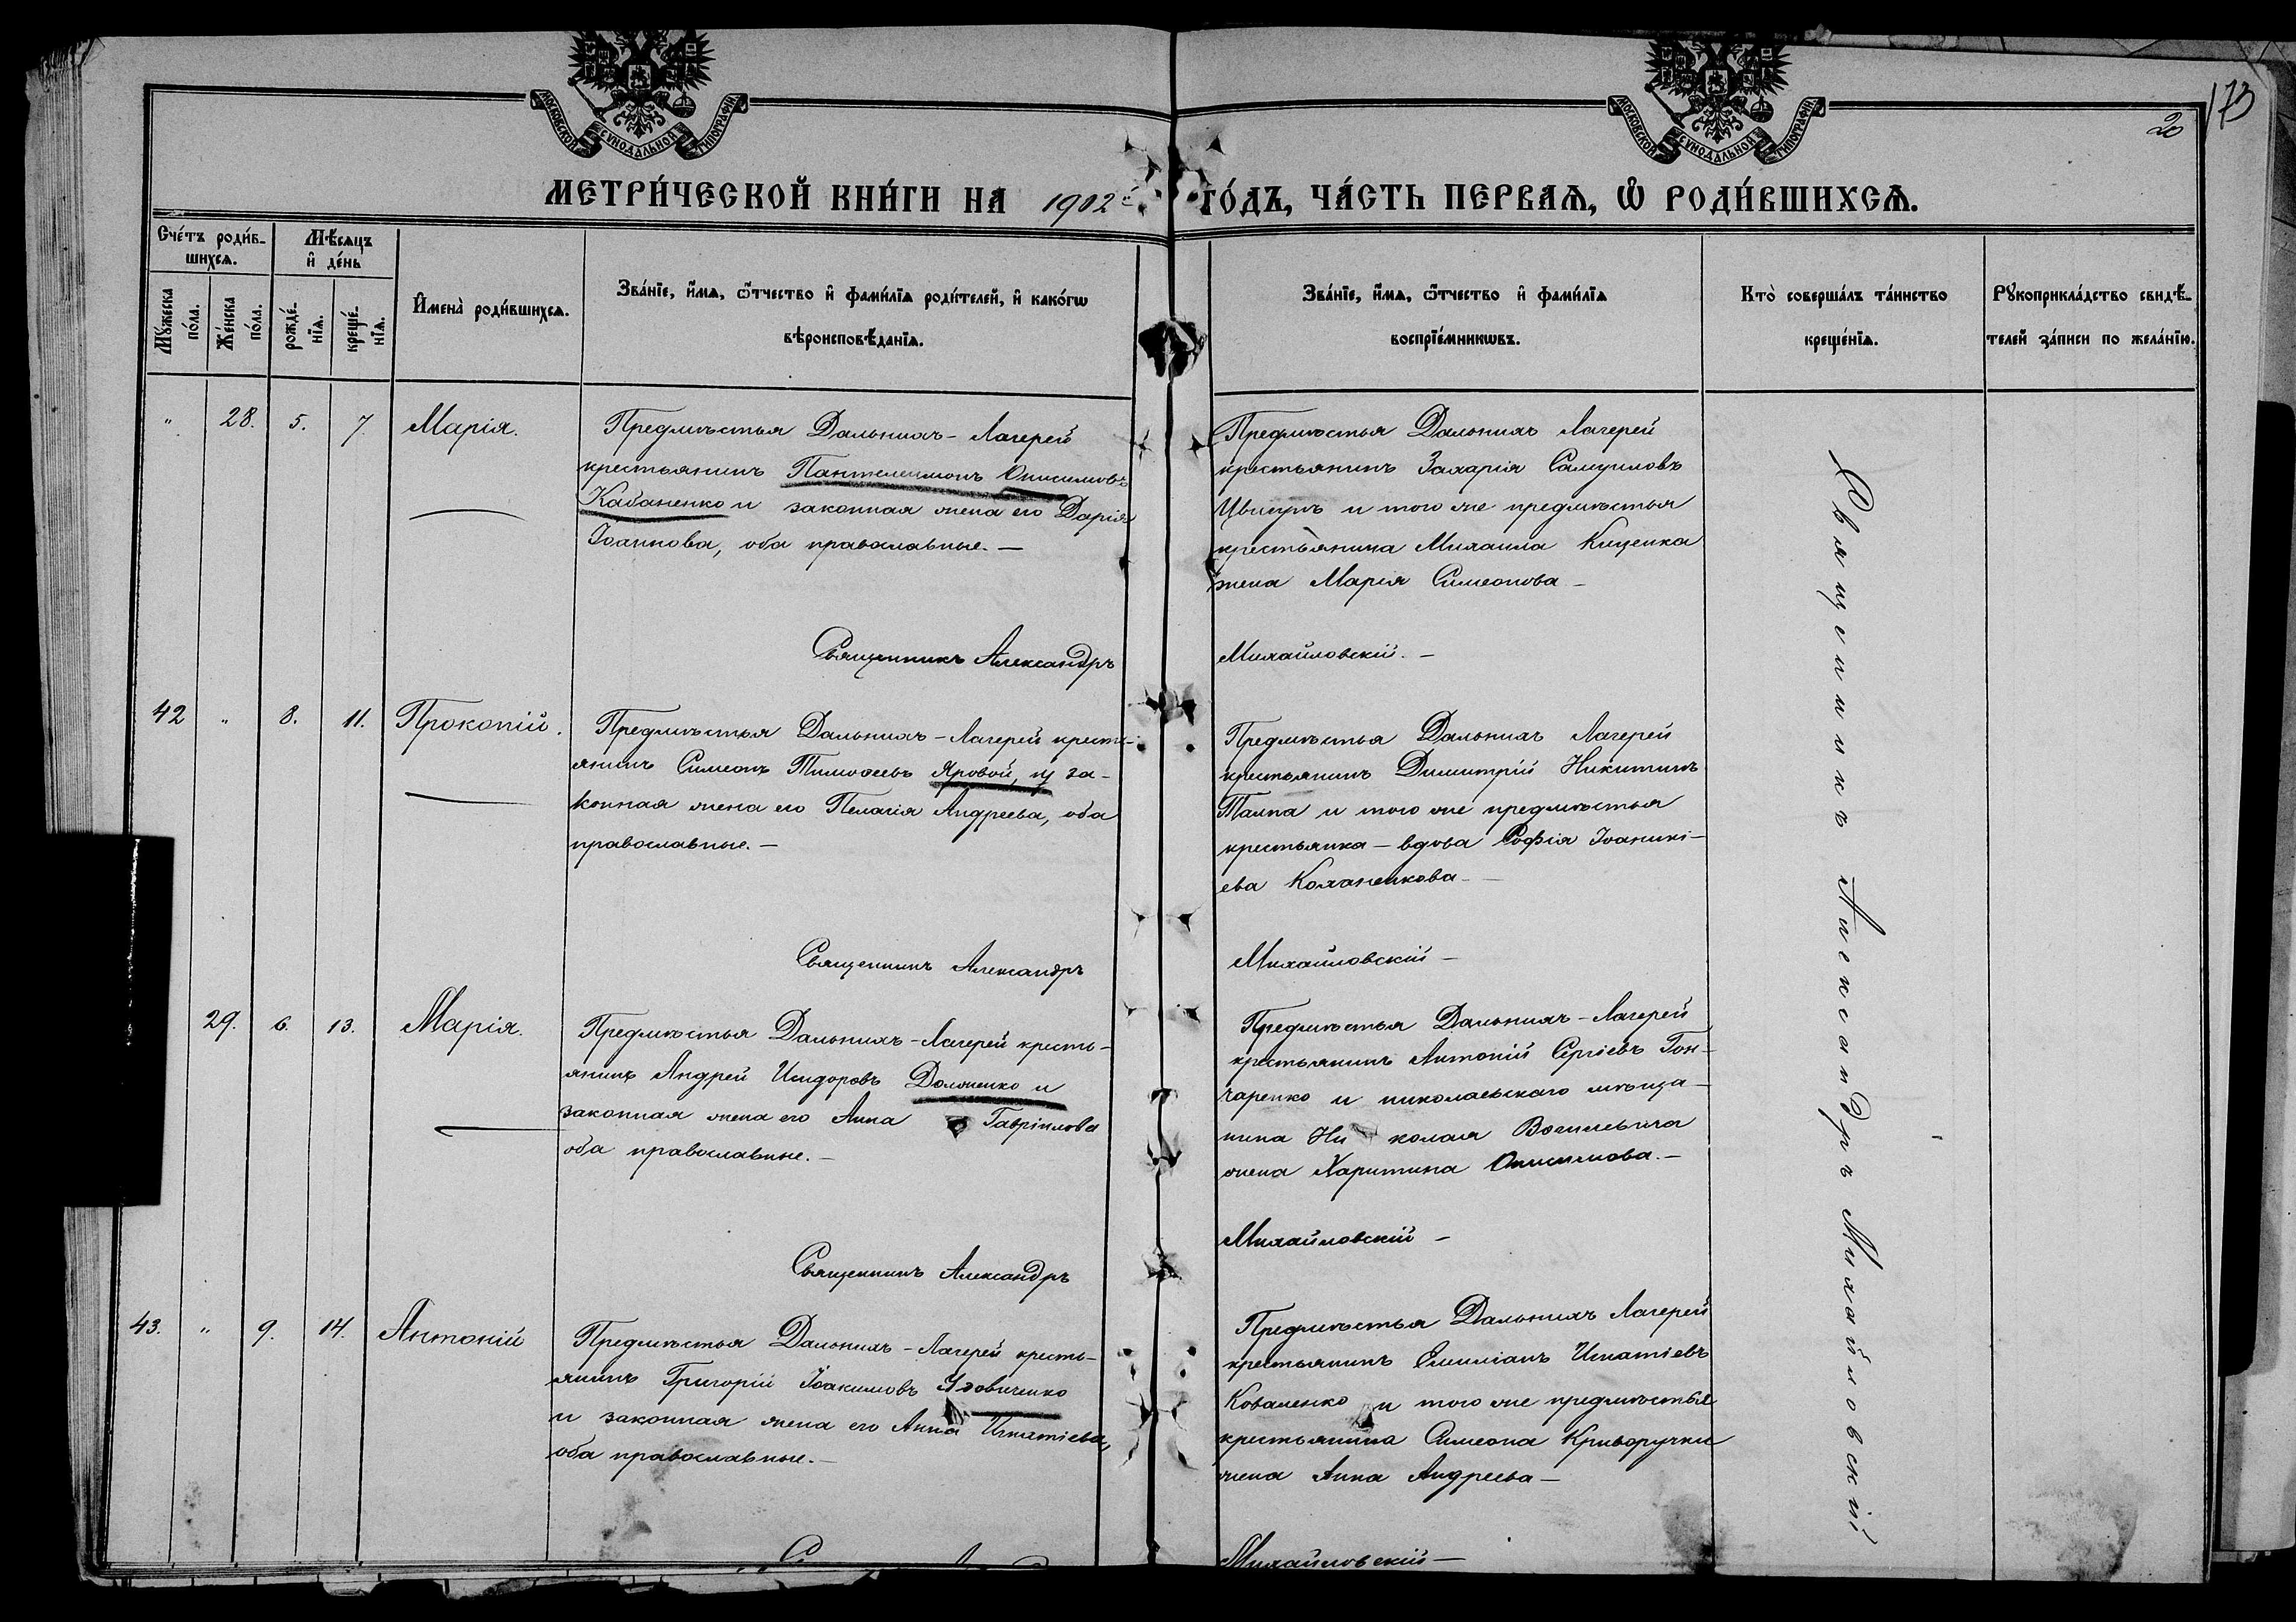 МОСКОВСКОЙ СѴНОДАЛЬНОЙ ТИПОГРАФІИ
МОСКОВСКОЙ СѴНОДАЛЬНОЙ ТИПОГРАФІИ
173
20
МЕТРИ́ЧЕСКОЙ КНИ́ГИ НА 1902 й ГО́ДЪ, ЧА́СТЬ ПЕРВАѦ, Ѽ РОДИ́ВШИХСѦ.
Сче́тъ роди́в-
шихсѧ.
Мѣ́сѧцъ
и҆ де́нь
Мꙋ́жеска
по́ла.
Же́нска
по́ла.
рожде́-
нїѧ.
креще́-
нїѧ.
И҆мена̀ роди́вшихсѧ.
Зва́нїе, и҆́мѧ, ѻ҆́тчество и҆ фами́лїѧ роди́телей, и҆ како́гѡ
вѣроисповѣ́данїѧ.
Зва́нїе, и҆́мѧ, ѻ҆́тчество и҆ фами́лїѧ
воспрїе́мникѡвъ.
Кто̀ соверша́лъ та́инство
креще́нїѧ.
Рꙋкоприкла́дство свидѣ́-
телей за́писи по жела́нїю.
" 28. 5. 7. Марія.
Предмѣстья Дальнихъ-Лагерей
крестьянинъ Пантелеимонъ Онисимовъ
Кабаненко и законная жена его Дарія
Іоаннова, оба православные. —
Предмѣстья Дальнихъ Лагерей
крестьянинъ Захарія Самуиловъ
Цвигунъ и того же предмѣстья
крестьянина Михаила Киценка
жена Марія Симеонова —
Священникъ Александръ Михайловскій. —
42 " 8. 11. Прокопій.
Предмѣстья Дальнихъ-Лагерей кресть-
янинъ Симеонъ Тимоѳеевъ Яровой, и за-
конная жена его Пелагія Андреева, оба
православные. —
Предмѣстья Дальнихъ Лагерей
крестьянинъ Димитрій Никитинъ
Талпа и того же предмѣстья
крестьянка — вдова Софія Іоаники-
ева Коханенкова —
Священникъ Александръ Михайловскій —
29. 6. 13. Марія.
Предмѣстья Дальнихъ-Лагерей кресть-
янинъ Андрей Исидоровъ Долженко и
законная жена его Анна Гавріилова
оба православные. —
Предмѣстья Дальнихъ-Лагерей
крестьянинъ Антоній Сергіевъ Гон-
чаренко и николаевскаго мѣща-
нина Николая
жена Харитина Онисимова. —
Священникъ Александръ Михайловскій —
43. " 9. 14. Антоній
Предмѣстья Дальнихъ-Лагерей кресть-
янинъ Григорій Іоакимовъ Удовиченко
и законная жена его Анна Игнатіева,
оба православные. —
Предмѣстья Дальнихъ Лагерей
крестьянинъ Емиліанъ Игнатіевъ
Коваленко и того же предмѣстья
крестьянина Симеона Криворучки
жена Анна Андреева —
Михайловскій —
Священникъ Александръ Михайловскій